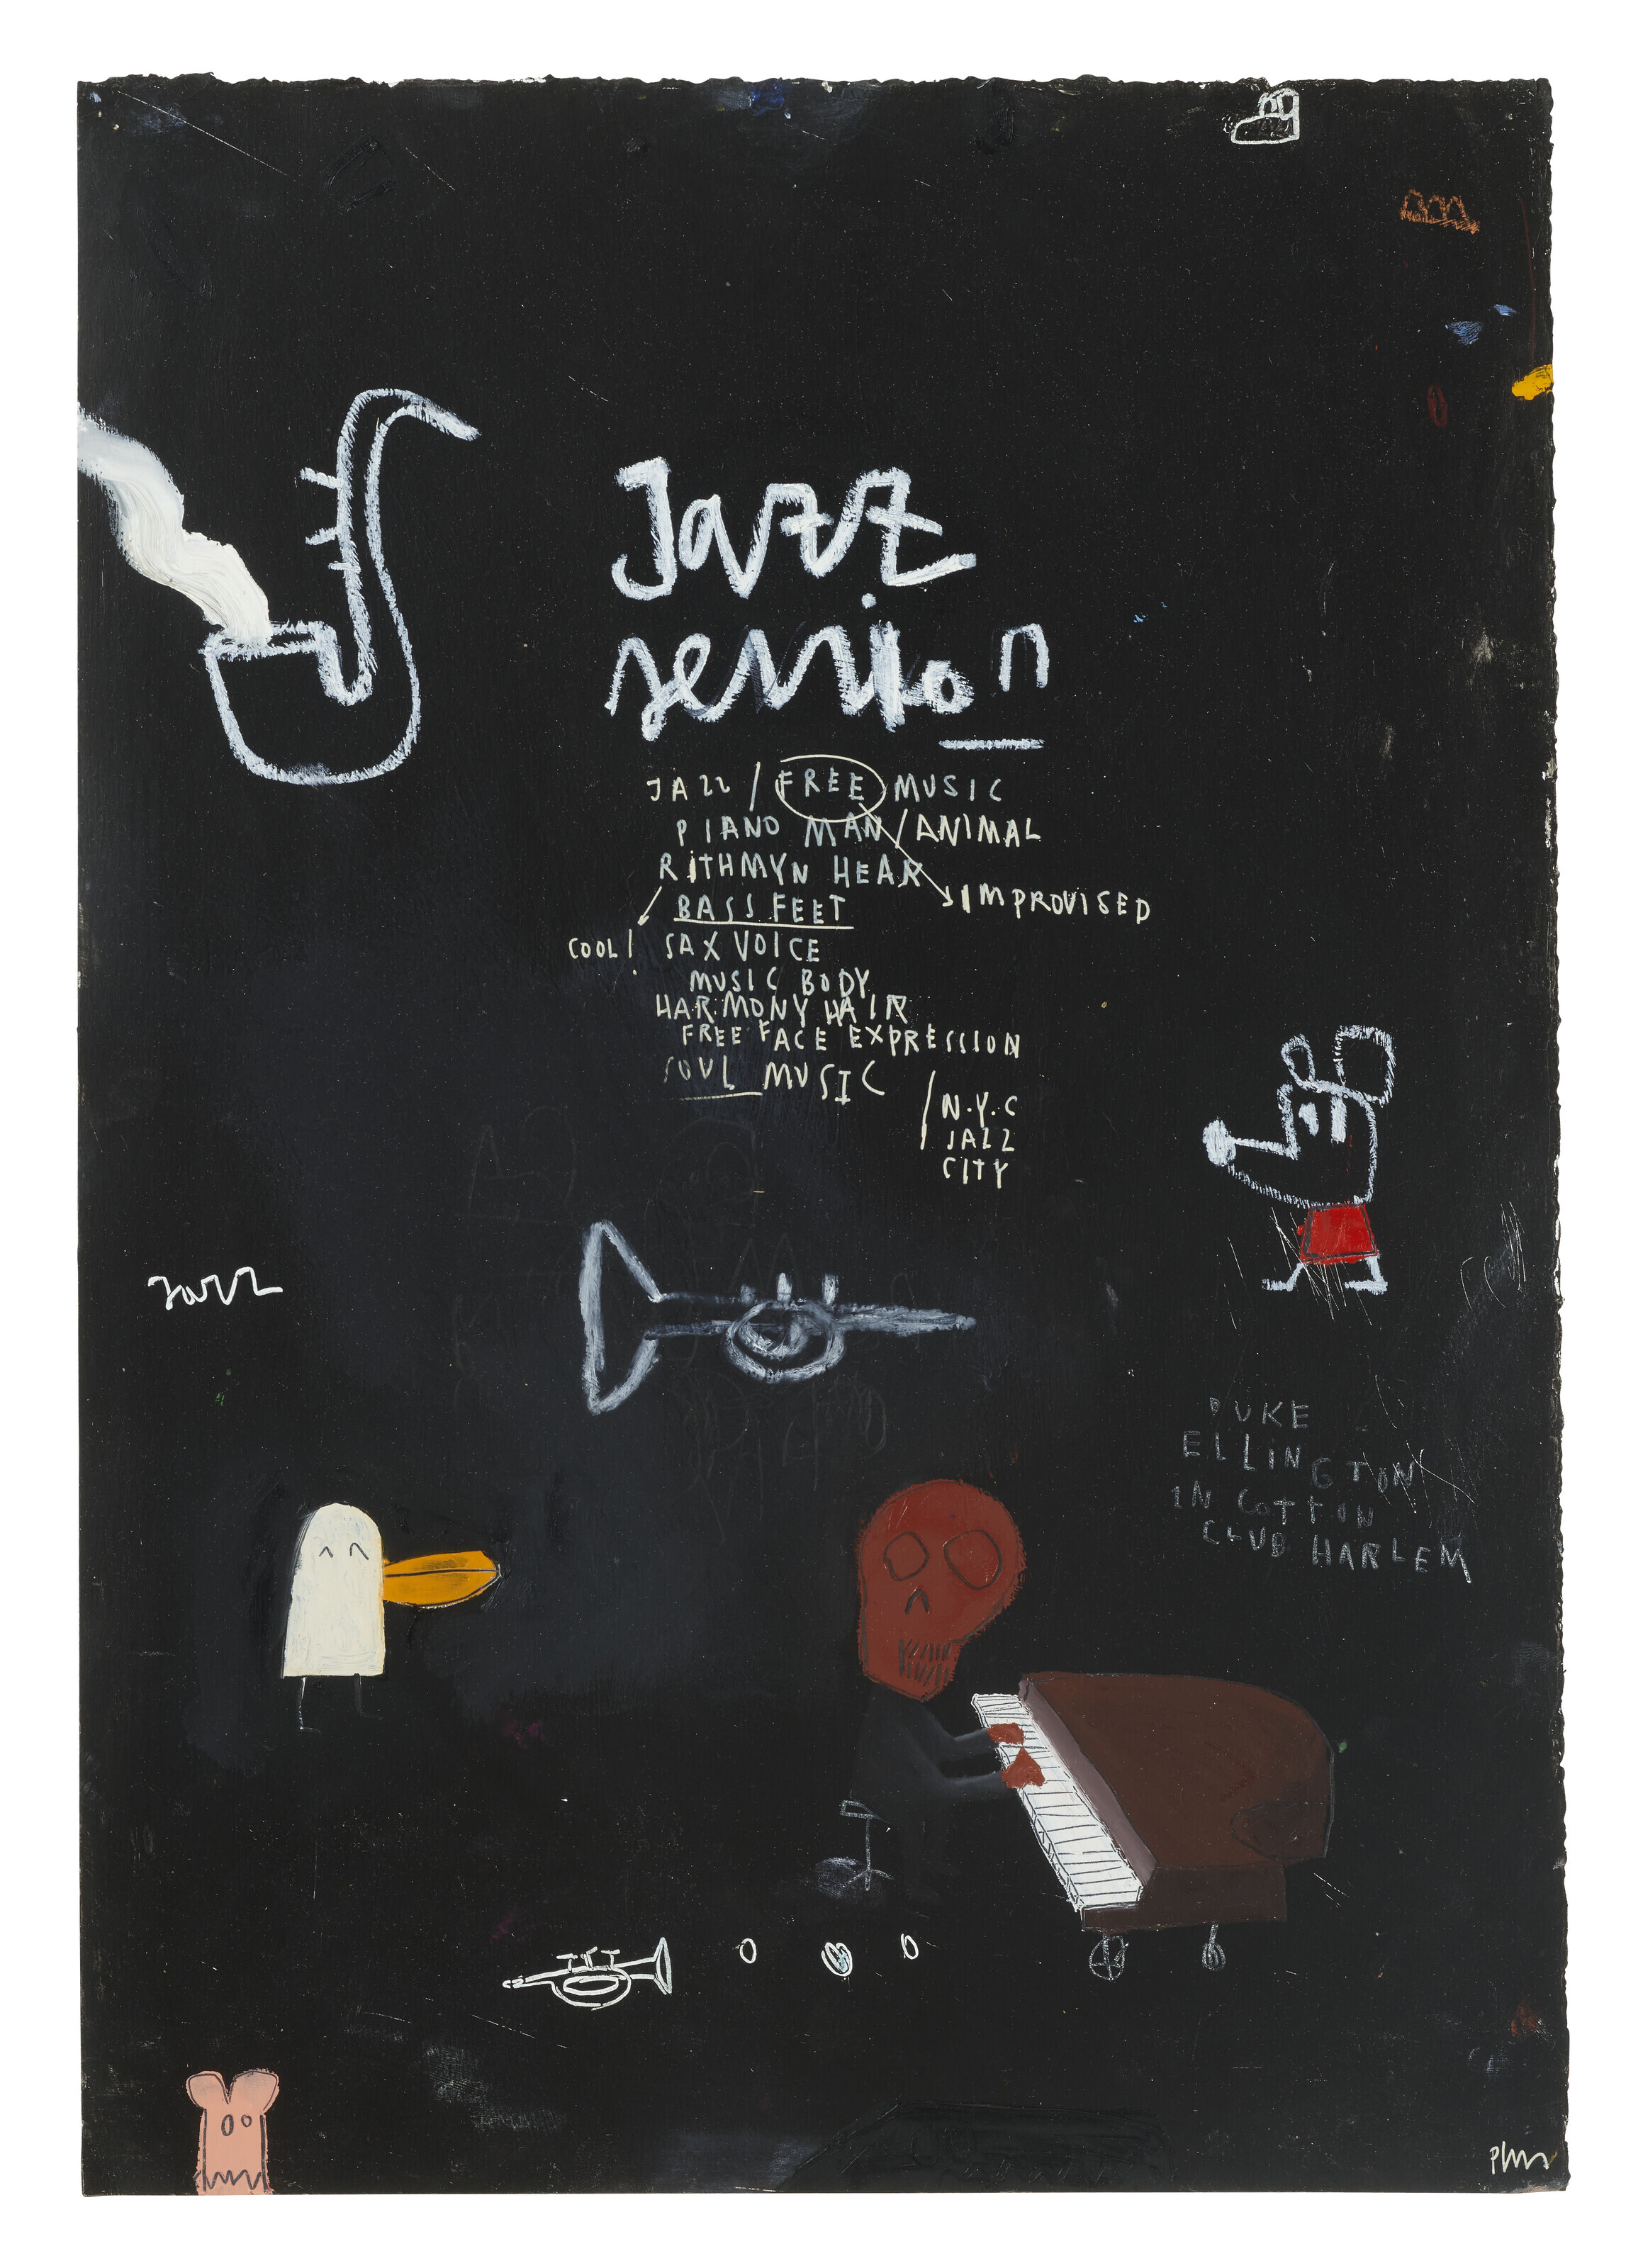 Jazz
session
JAZZ / FREE MUSIC
PIANO MAN / ANIMAL
RITHMYN HEAR
IMPROVISED
BASS FEET
COOL! SAX VOICE
MUSIC BODY
HARMONY HAIR
FREE FACE EXPRESSION
SOUL MUSIC
/ N.Y.C
JAZZ
CITY
Jazz
DUKE
ELLINGTON
IN COTTON
CLUB HARLEM